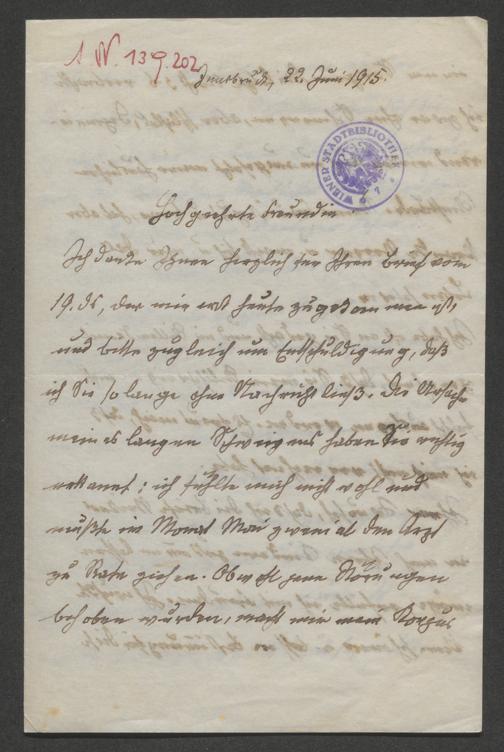 I.N. 139.202
Innsbruck, 22. Juni 1915.
WIENER STADTBIBLIOTHEK
Hochgeehrte Freundin
Ich danke Ihnen herzlich für Ihren Brief vom
19. ds, der mir erst heute zugekommen ist,
und bitte zugleich um Entschuldigung, daß
ich Sie so lange ohne Nachricht ließ. Die Ursache
meines langen Schweigens haben Sie richtig
erkannt: ich fühlte mich nicht wohl und
mußte im Monat Mai zweimal den Arzt
zu Rate ziehen. Obwohl jene Störungen
behoben wurden, macht mir mein Korpus